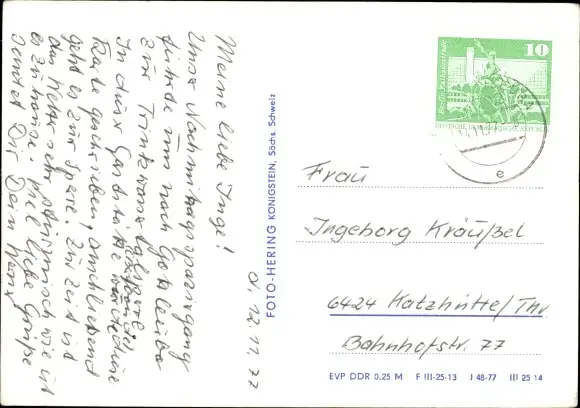 d. 12.11.77
Meine liebe Inge!
Unser Nachmittagsspaziergang
führte uns nach Gottleuba
zur Trinkwassertalsperre.
In dieser Gaststätte wird eine
Karte geschrieben, anschließend
geht es zur Sperre. Zur Zeit ist
das Wetter sehr stürmisch wie ist
es zu hause. Viel liebe Grüße
sendet Dir Dein
FOTO-HERING KÖNIGSTEIN, Sächs. Schweiz
10
Berlin, Rathausstraße
DEUTSCHE DEMOKRATISCHE REPUBLIK
e
Frau
Ingeborg Kräußel
6424 Katzhütte/Thür
Bahnhofstr. 77
EVP DDR 0.25 M F III-25-13 J 48-77 III 25 14